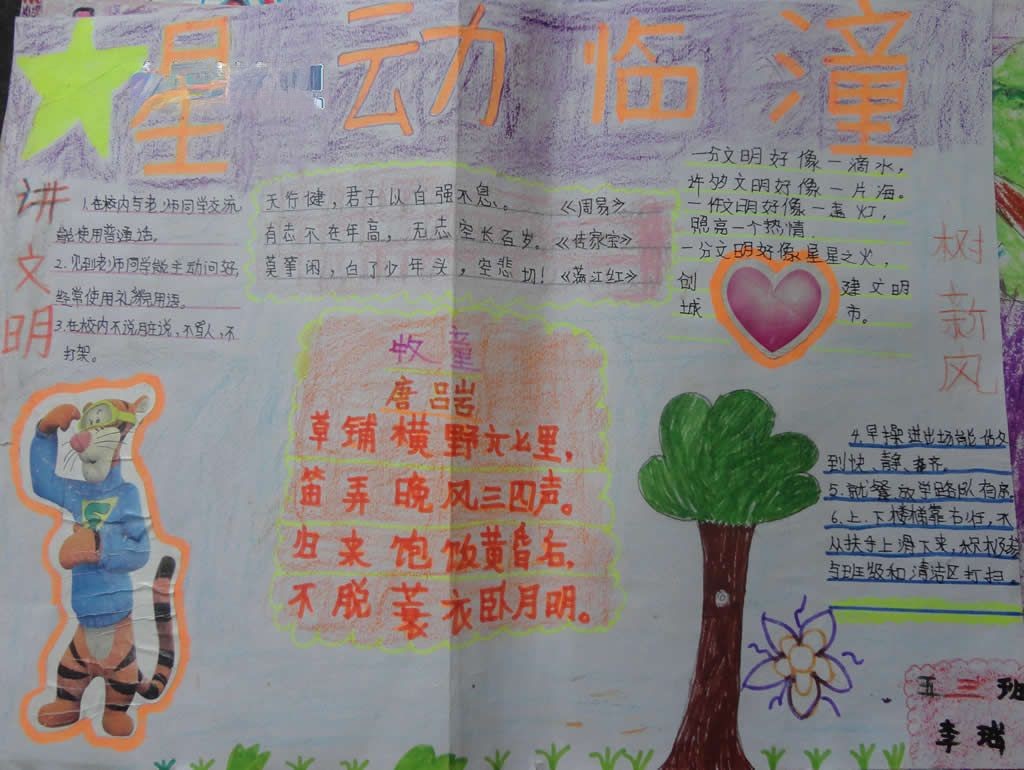 星动临潼
讲文明
1.在校内与老师同学交流
能使用普通话。
2.见到老师同学能主动问好,
经常使用礼貌用语。
3.在校内不说脏话,不骂人,不
打架。
天行健,君子以自强不息。《周易》
有志不在年高,无志空长百岁。《传家宝》
莫等闲,白了少年头,空悲切!《满江红》
一分文明好像一滴水,
许多文明好像一片海。
一份文明好像一盏灯,
照亮一个热情.
一分文明好像星星之火,
创建文明
城市。
树新风
牧童
唐 吕岩
草铺横野六七里,
笛弄晚风三四声。
归来饱饭黄昏后,
不脱蓑衣卧月明。
4.早操进出场能做
到快、静、齐。
5.就餐放学路队有序
6.上、下楼梯靠右行,不
从扶手上滑下来,积极参
与班级和清洁区打扫.
五三班
李